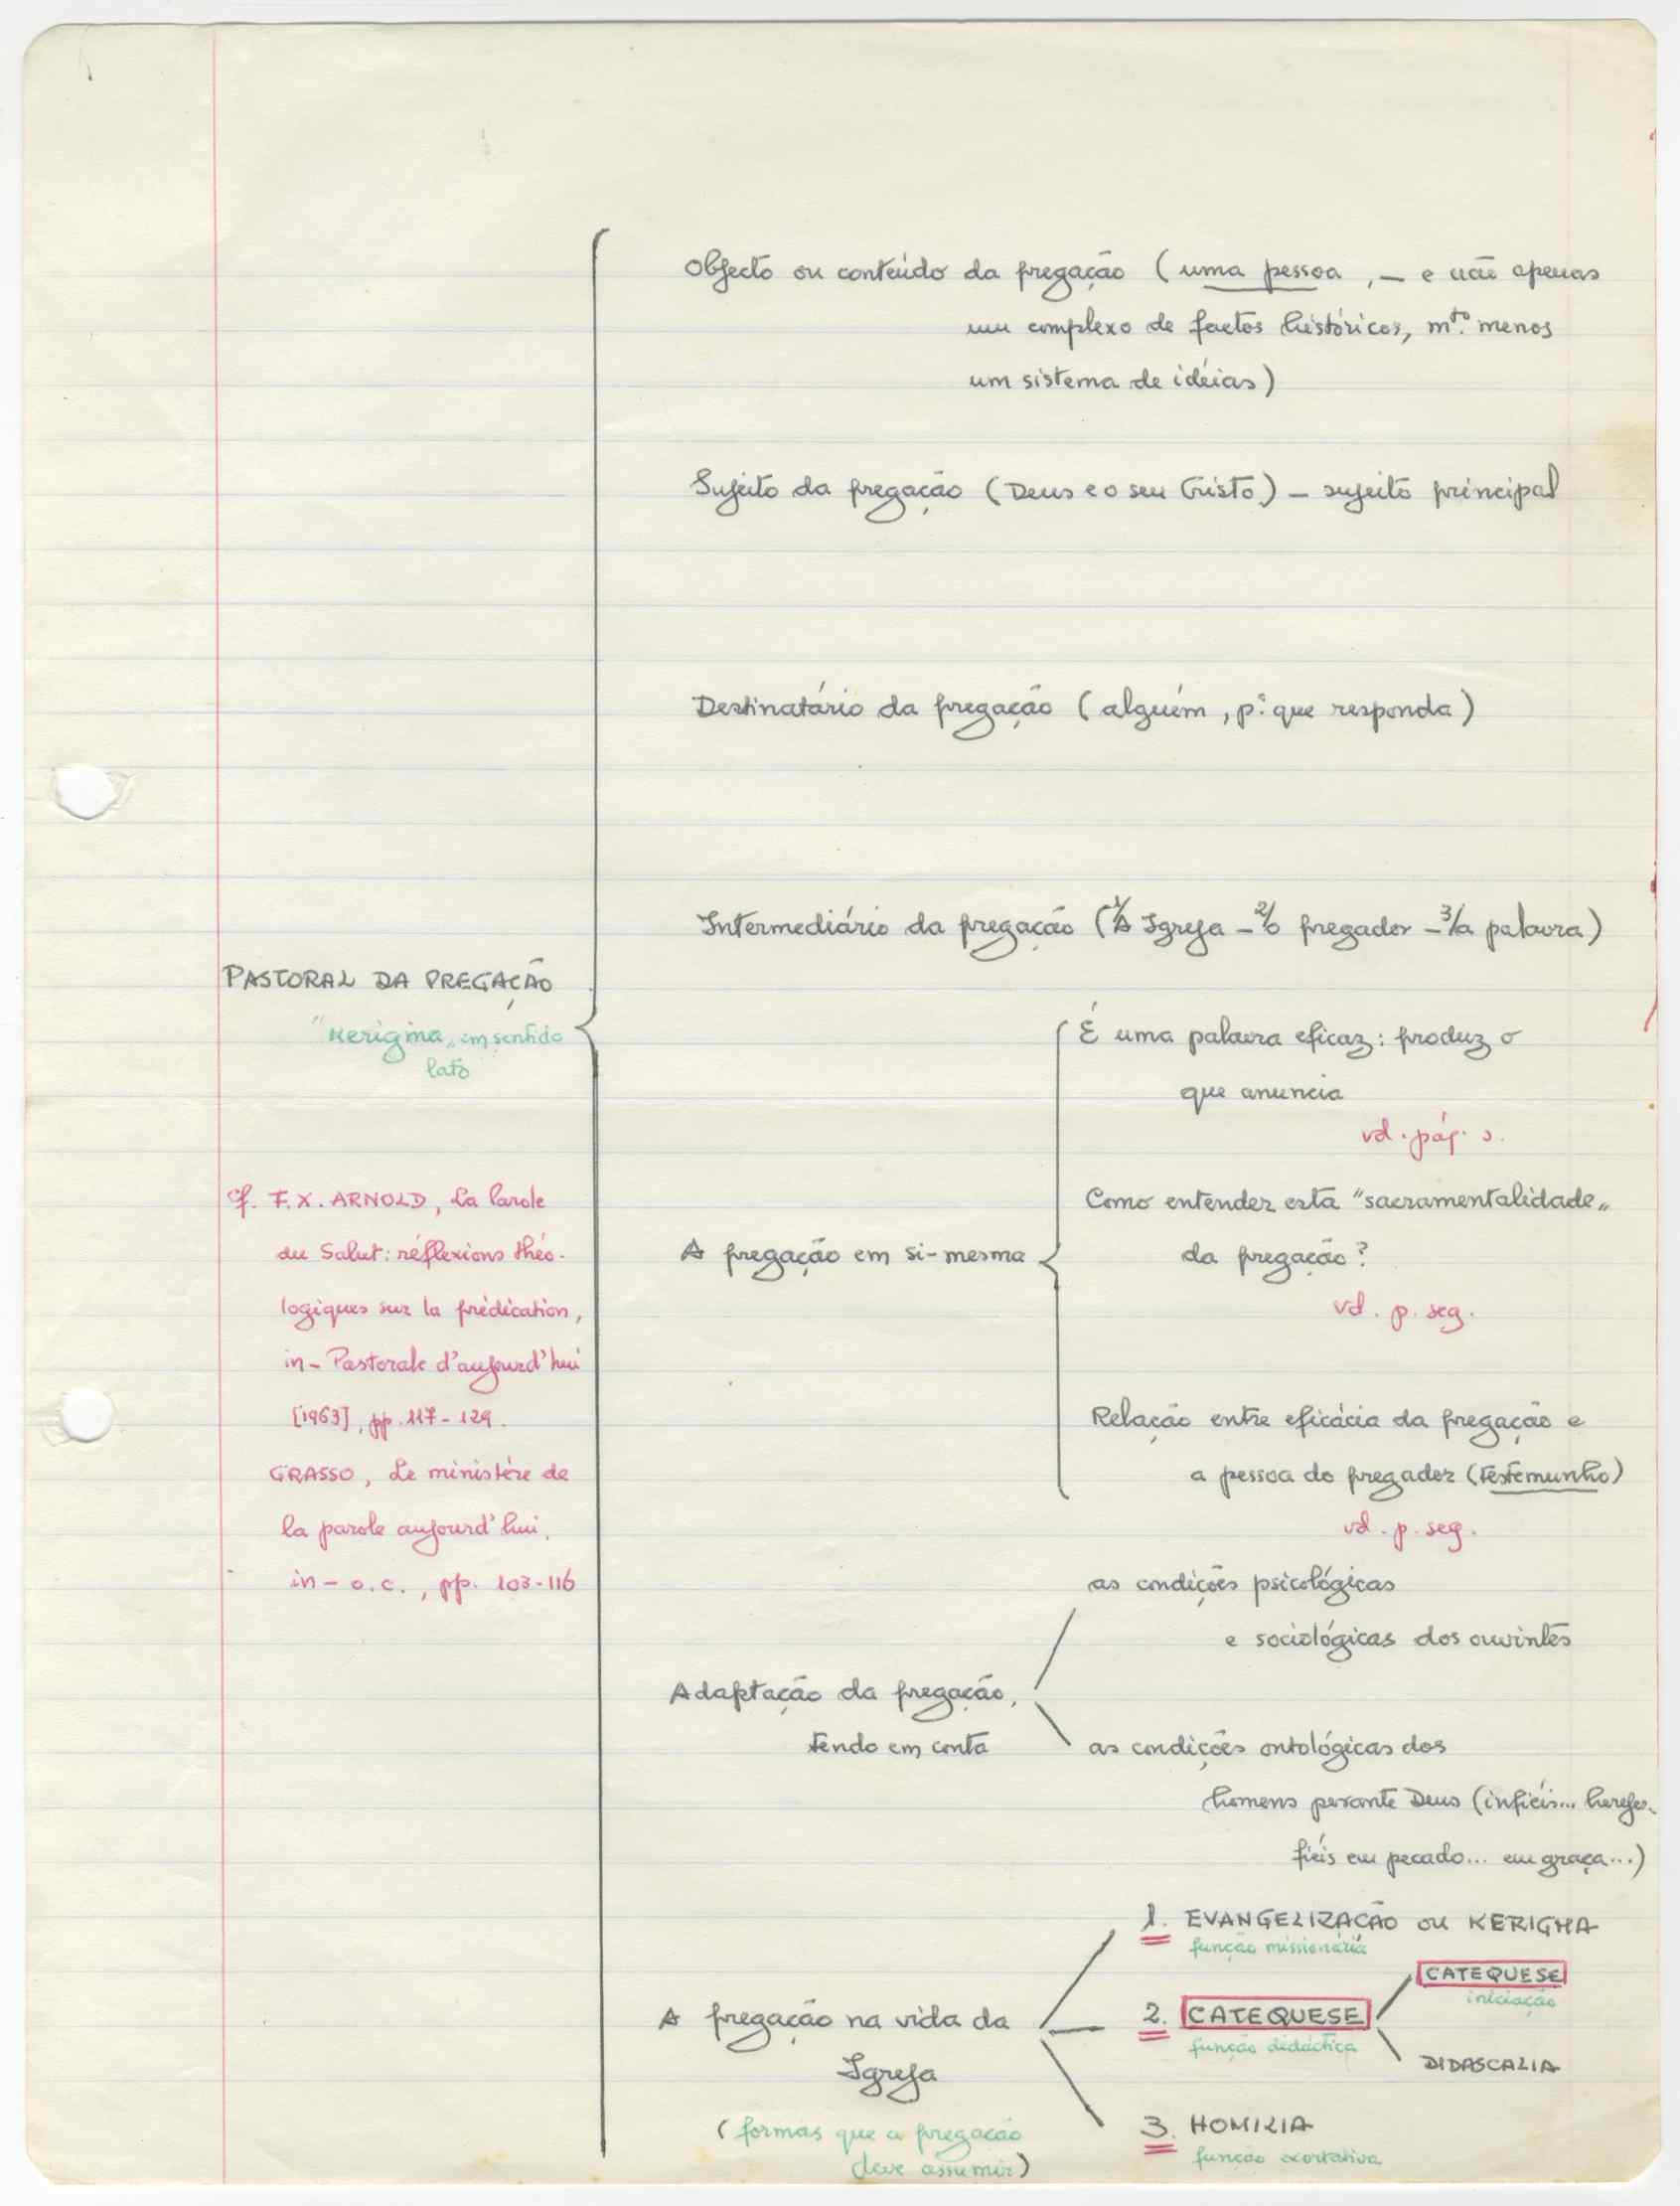 Objecto ou conteúdo da pregação (uma pessoa, — e não apenas
um complexo de factos históricos, mto. menos
um sistema de idéias)
Sujeito da pregação (Deus e o seu Cristo) — sujeito principal
Destinatário da pregação (alguém, p.a que responda)
Intermediário da pregação (1/A Igreja — 2/o pregador — 3/a palavra)
PASTORAL DA PREGAÇÃO
"Kerigma„ em sentido
lato
cf. F. X. ARNOLD, La Parole
du Salut: réflexions théo-
logiques sur la prédication,
in — Pastorale d'aujourd'hui
[1963], pp. 117-129.
GRASSO, Le ministère de
la parole aujourd'hui,
in — o.c., pp. 103-116
A pregação em si-mesma
É uma palavra eficaz: produz o
que anuncia
vd. pág. s.
Como entender esta "sacramentalidade„
da pregação?
vd. p. seg.
Relação entre eficácia da pregação e
a pessoa do pregador (testemunho)
vd. p. seg.
Adaptação da pregação,
tendo em conta
as condições psicológicas
e sociológicas dos ouvintes
as condições ontológicas dos
homens perante Deus (infiéis...
fiéis em pecado... em graça...)
A pregação na vida da
Igreja
(formas que a pregação
deve assumir)
1. EVANGELIZAÇÃO OU KERIGMA
função missionária
2. CATEQUESE
função didáctica
CATEQUESE
iniciação
DIDASCALIA
3. HOMILIA
função exortativa